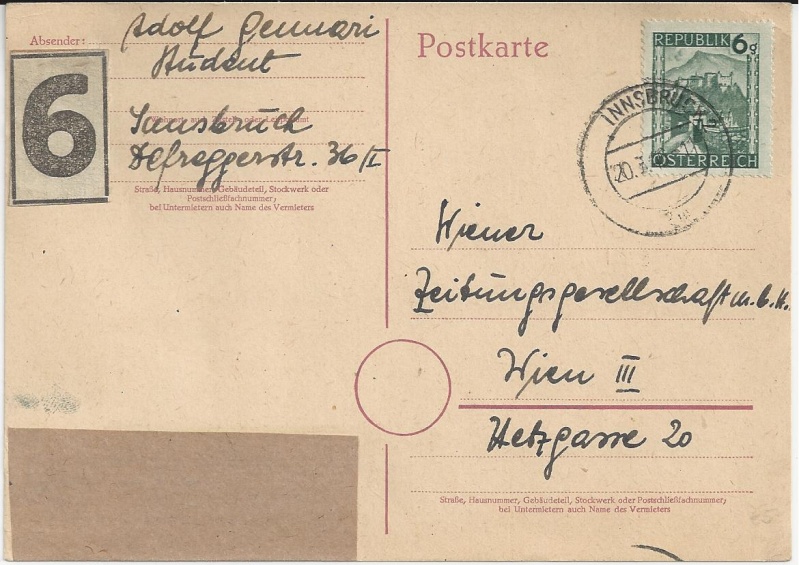 Absender: Adolf Gennari
Student
6
Wohnort, auch Zustell- oder Leitpostamt
Innsbruck
Defreggerstr. 36/I
Straße, Hausnummer, Gebäudeteil, Stockwerk oder
Postschließfachnummer;
bei Untermietern auch Name des Vermieters
Postkarte
REPUBLIK 6g
ÖSTERREICH
INNSBRUCK
20.
Wiener
Zeitungsgesellschaft m.b.H.
Wien III
Hetzgasse 20
Straße, Hausnummer, Gebäudeteil, Stockwerk oder Postschließfachnummer;
bei Untermietern auch Name des Vermieters